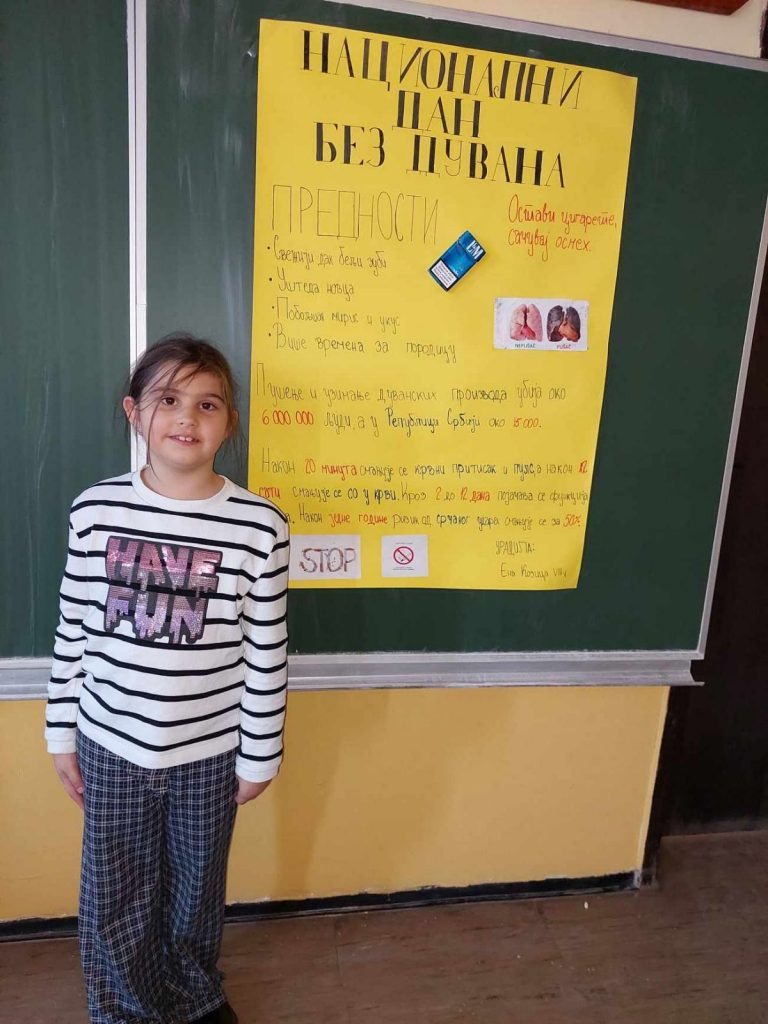 НАЦИОНАЛНИ
ДАН
БЕЗ ДУВАНА
ПРЕДНОСТИ
Остави цигарете,
сачувај осмех.
• Свежији дах бељи зуби
• Уштеда новца
• Побољшан мирис и укус
• Више времена за породицу
LM
NEPUŠAČ PUŠAČ
Пушење и узимање дуванских производа убија око
6 000 000 људи, а у Републици Србији око 15 000.
Након 20 минута смањује се крвни притисак и пулс, а након 12
сати смањује се CO у крви. Кроз 2 до 12 дана појачава се функција
Након једне године ризик од срчаног удара смањује се за 50%.
STOP
УРАДИЛА:
Ена Козица VIII
HAVE
FUN